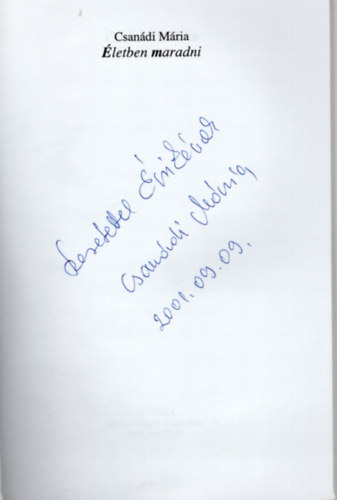 Csanádi Mária
Életben maradni
Szeretettel Évikének
Csanádi Mária
2001. 09. 09.